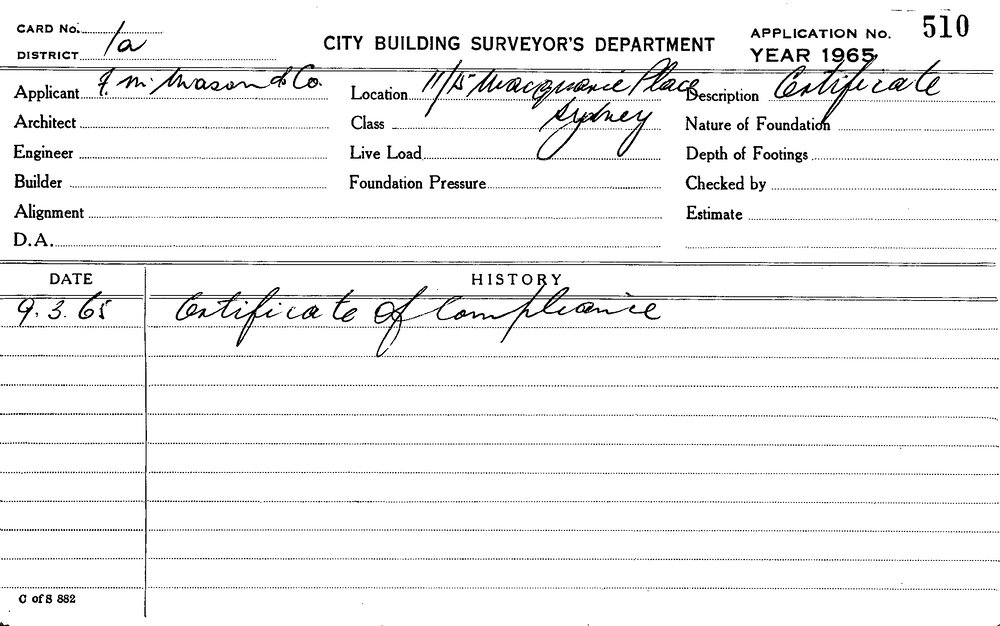 CARD No. 
DISTRICT 1a
CITY BUILDING SURVEYOR'S DEPARTMENT
APPLICATION No. 510
YEAR 1965
Applicant F. M. Mason & Co.
Location 11/15 Macquarie Place
Sydney
Description Certificate
Architect
Class
Nature of Foundation
Engineer
Live Load
Depth of Footings
Builder
Foundation Pressure
Checked by
Alignment
Estimate
D.A.
DATE HISTORY
9.3.65 Certificate of Compliance
C of S 882